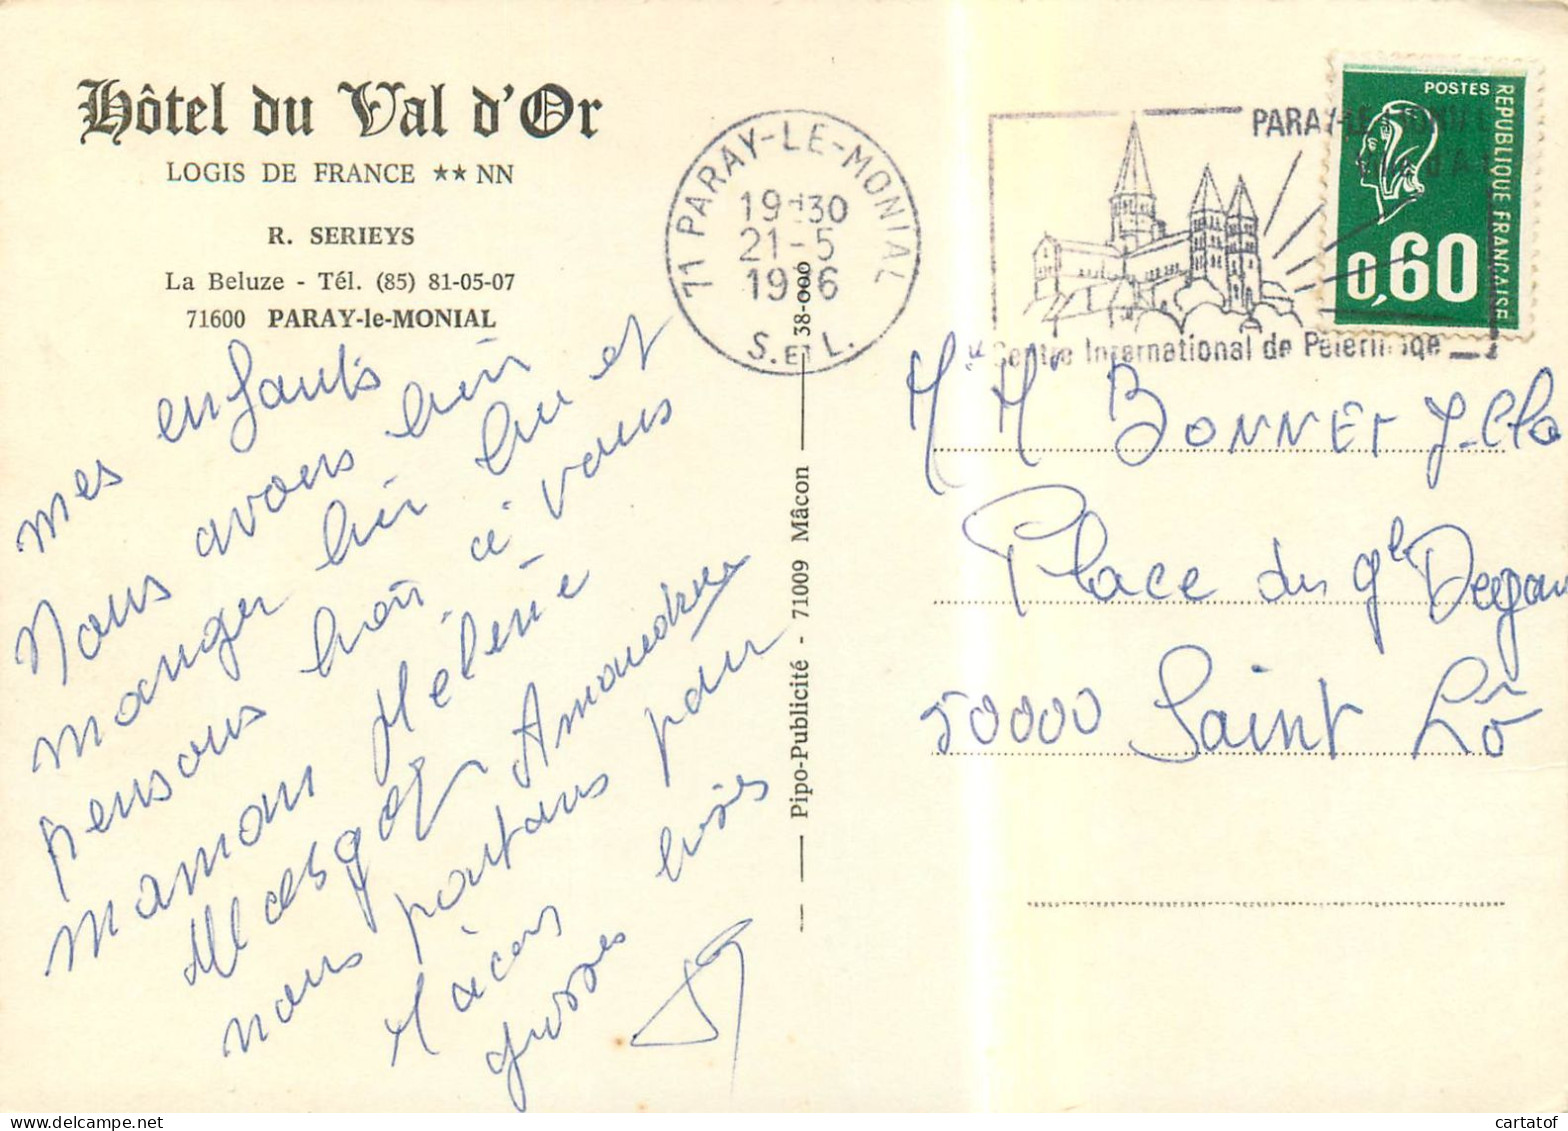 Hôtel du Val d'Or
LOGIS DE FRANCE ★★ NN
R. SERIEYS
La Beluze - Tél. (85) 81-05-07
71600 PARAY-le-MONIAL
mes enfants
Nous avons bien
manger bien bu et
pensons bien à vous
maman Hélène
nous partons pour
Mâcon
grosses bises
Pipo-Publicité - 71009 Mâcon
38-000
71 PARAY-LE-MONIAL
19H30
21-5
1976
S. ET L.
PARAY-LE-MONIAL
Centre International de Pèlerinage
POSTES
REPUBLIQUE FRANÇAISE
0,60
Mr Me BONNET J-Clo
Place du Gl Degau
50000 Saint Lô
cartatof